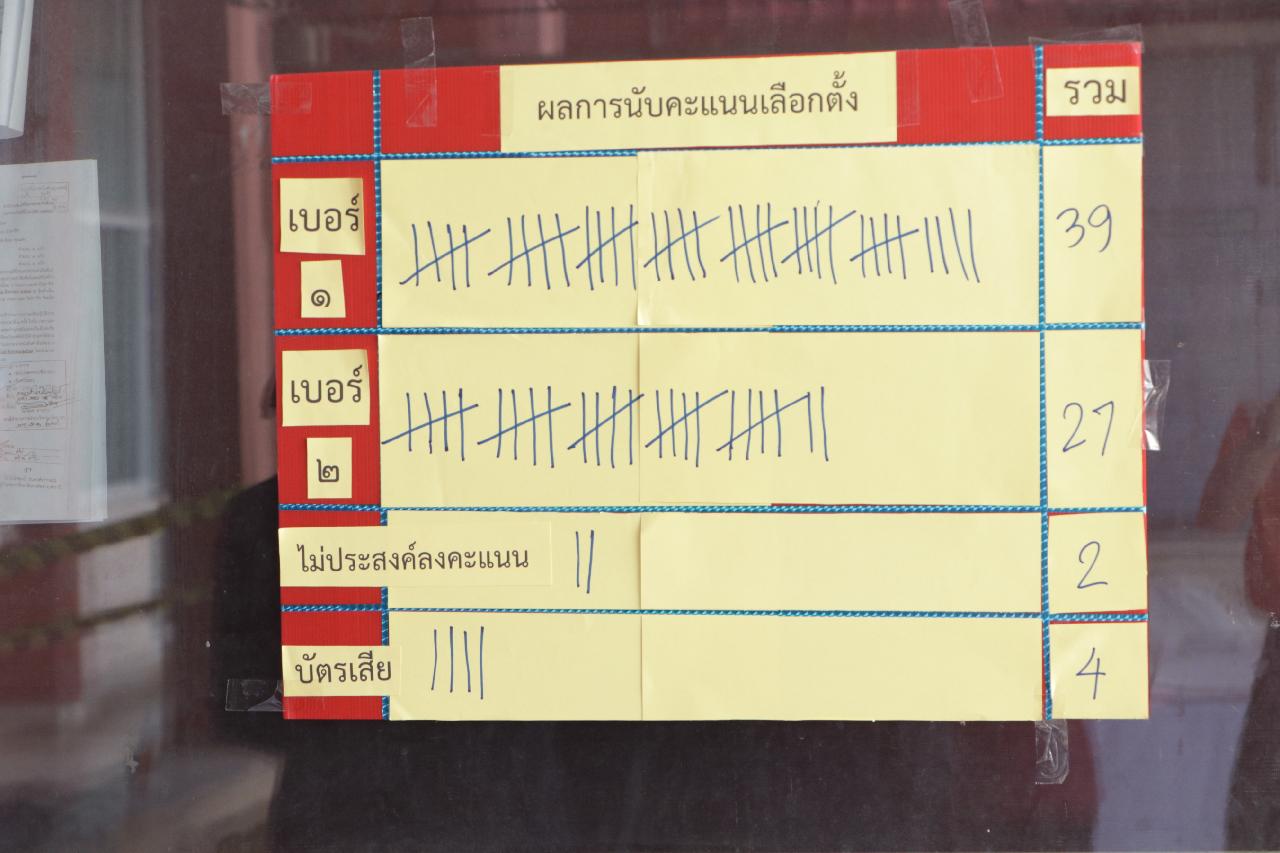 ผลการนับคะแนนเลือกตั้ง
รวม
เบอร์
๑
39
เบอร์
๒
27
ไม่ประสงค์ลงคะแนน
2
บัตรเสีย
4